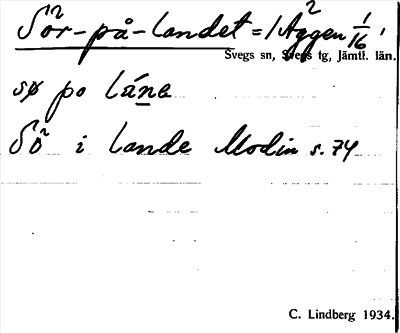 Sör-på-landet = / Aggen 1/16
Svegs sn, Svegs tg, Jämtl. län.
sø po lána
Sö i lande Modin s. 74
C. Lindberg 1934.